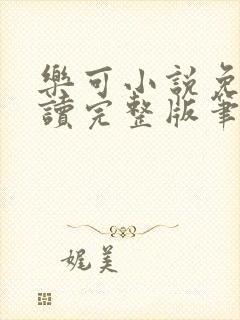 樂可小說免
讀完整版筆
娓美